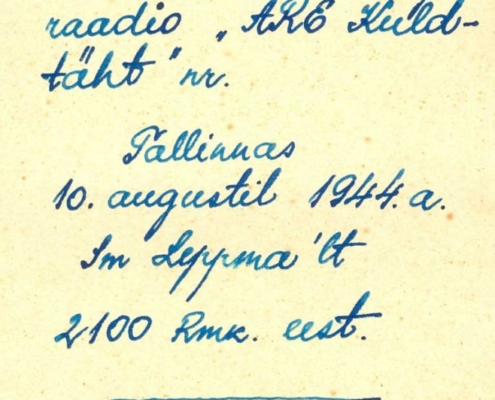 raadio „ARE Kuld-
täht" nr.
Tallinnas
10. augustil 1944. a.
Im Leppma'lt
2100 Rmk. eest.